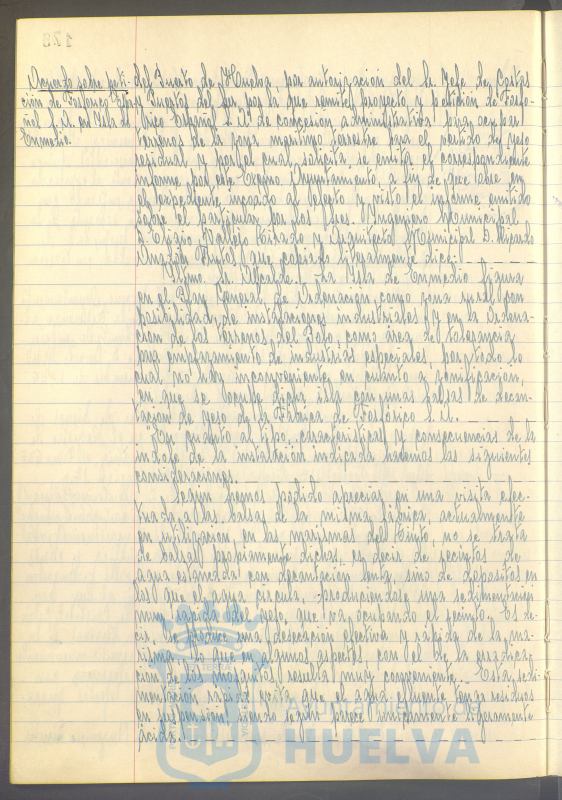 178
Acuerdo sobre peti-
ción de Fosfórico Espa-
ñol S.A. en Isla de
Enmedio.
del Puerto de Huelva, por autorización del Sr. Jefe de Costas
y Puertos del Sur, por la que remite proyecto, a petición de Fosfó-
rico Español S.A. de concesión administrativa para ocupar
terrenos de la zona marítimo terrestre para el vertido de yeso
residual y por el cual, solicita se emita el correspondiente
informe por este Excmo. Ayuntamiento, a fin de que obre en
el expediente incoado al efecto y visto el informe emitido
sobre el particular por los Sres. Ingeniero Municipal
D. Vallejo y Arquitecto Municipal D. Ricardo
Anadón que copiado literalmente dice:
Iltmo. Sr. Alcalde. La Isla de Enmedio figura
en el Plan General de Ordenación como zona rural con
posibilidad de instalaciones industriales y en la Ordena-
ción de los terrenos del Polo, como área de tolerancia
para emplazamiento de industrias especiales, por todo lo
cual no hay inconveniente en cuanto a zonificación,
en que se ocupe dicha isla con unas balsas de decan-
tación de yeso de la Fábrica de Fosfórico S.A.
En cuanto al tipo, características y consecuencias de la
índole de la instalación indicada hacemos las siguientes
consideraciones.
Según hemos podido apreciar en una visita efec-
tuada a las balsas de la misma fábrica actualmente
en utilización, en las marismas del Tinto, no se trata
de balsas propiamente dichas, es decir de recintos de
agua estancada con decantación lenta, sino de depósitos en
los que el agua circula, produciéndose una sedimentación
muy rápida del yeso, que va ocupando el recinto. Es de-
cir, se produce una desecación efectiva y rápida de la ma-
risma, lo que en algunos aspectos, con el de la erradica-
ción de los mosquitos, resulta muy conveniente. Esta sedi-
mentación rápida evita que el agua efluente tenga residuos
en suspensión, siendo según parece únicamente ligeramente
ácida.
Ayuntamiento de
HUELVA